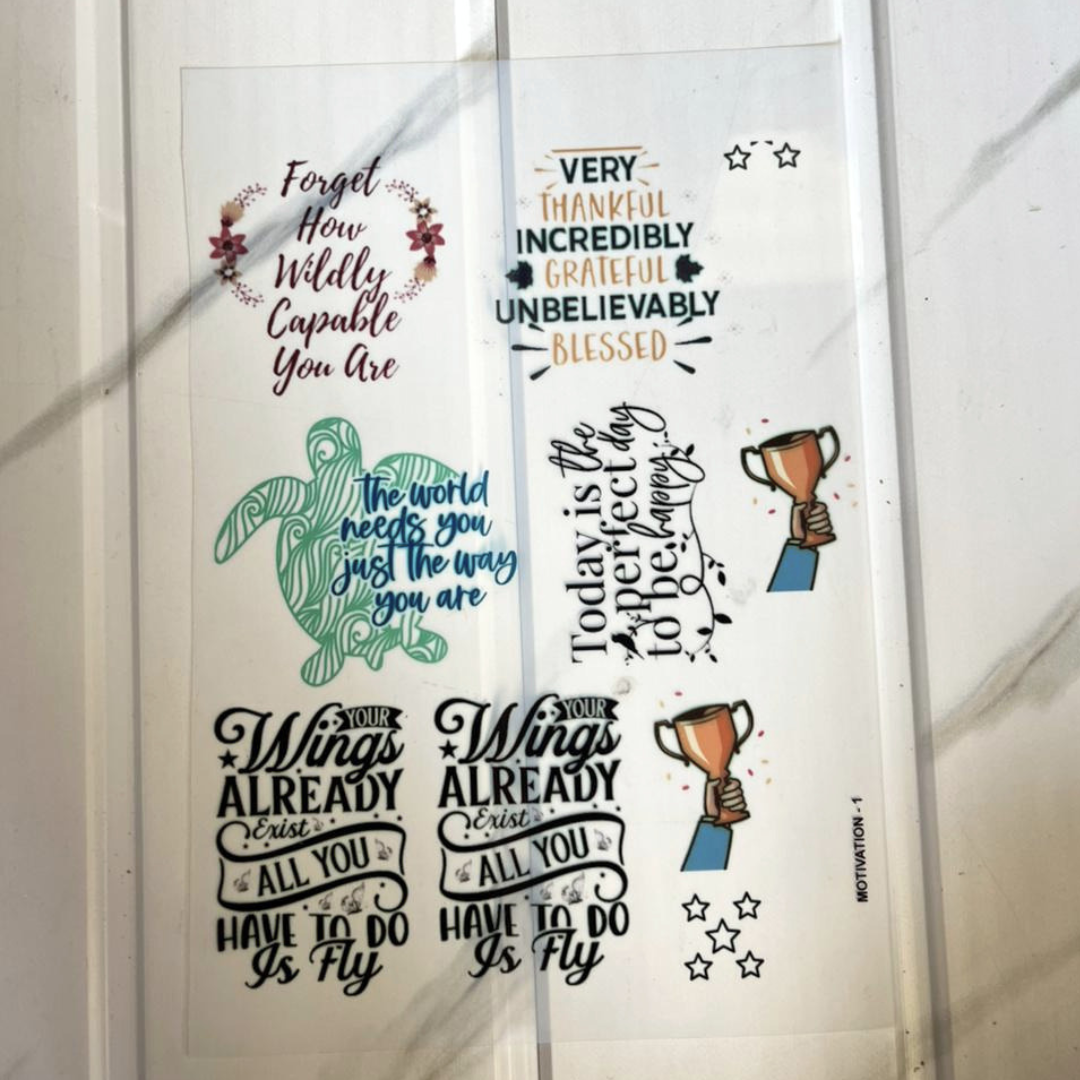 Forget
How
Wildly
Capable
You Are
VERY
THANKFUL
INCREDIBLY
GRATEFUL
UNBELIEVABLY
BLESSED
the world
needs you
just the way
you are
Today is the
perfect day
to be happy.
YOUR
Wings
ALREADY
Exist
ALL YOU
HAVE TO DO
Is Fly
YOUR
Wings
ALREADY
Exist
ALL YOU
HAVE TO DO
Is Fly
MOTIVATION - 1